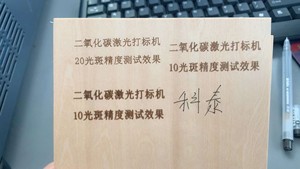 二氧化碳激光打标机
20光斑精度测试效果
二氧化碳激光打标机
10光斑精度测试效果
二氧化碳激光打标机
10光斑精度测试效果
科泰